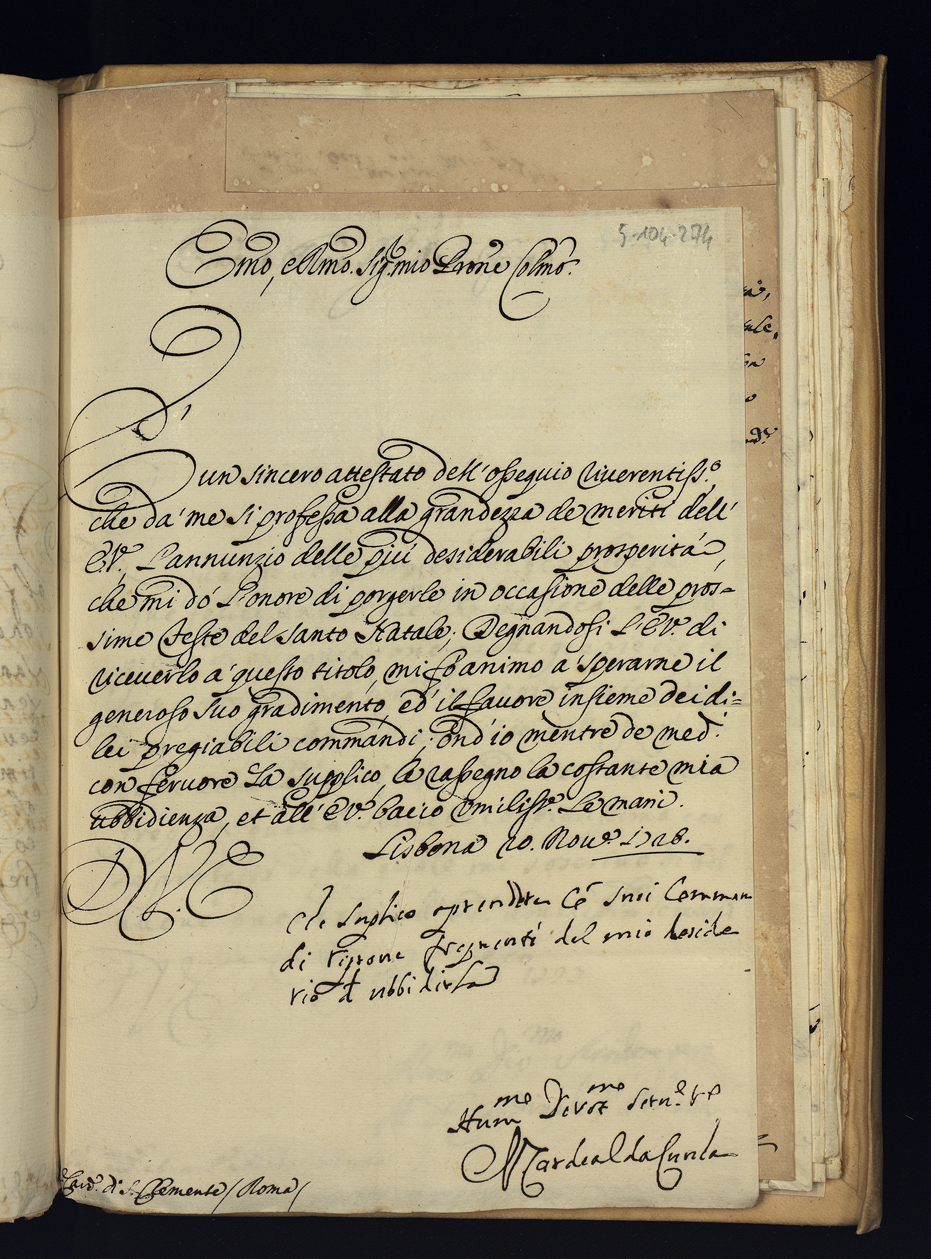 5-104-274
Emo, e Rmo. Sig. mio Prone Colmo.
È un sincero attestato dell' ossequio riverentiss.o
che da' me si professa alla grandezza de meriti dell'
E.V. L'annunzio delle più desiderabili prosperità
che mi dò L'onore di porgerle in occasione delle pros=
sime Feste del Santo Natale; Degnandosi L'E.V. di
riceverlo a' questo titolo, mi fo animo a' sperarne il
generoso suo gradimento, ed' il favore insieme dei di=
lei pregiabili commandi; ond' io mentre de med.
con fervore La supplico, le rassegno la costante mia
ubbidienza, et all' E.V. bacio Umiliss. Le mani.
Lisbona 20. Nov.e 1728.
D V E
suoi Comman
di
del mio deside
rio d ubbidirla
Hum.mo Devot.mo Ser.
Cardeal da Cunha
Card. di S. Clemente / Roma /